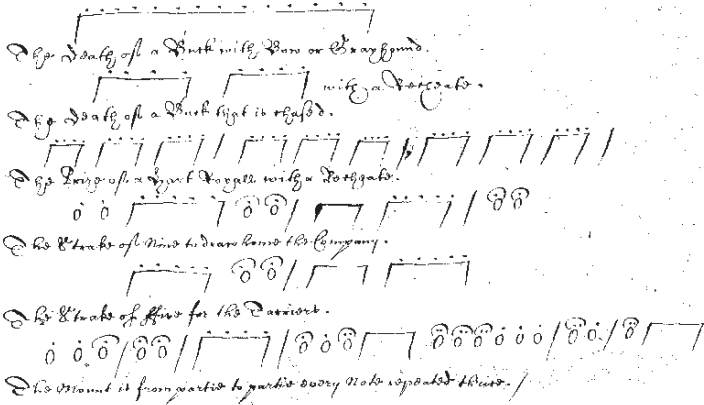 The Death of a Buck with Bow or Grayhound.
with a Rechate.
The Death of a Buck that is chased.
The Prize of a Hart Royall with a Rechate.
The Strake of Nine to draw home the Company.
The Strake of ffive for the Tarriers.
The Mount is from partie to partie every Note repeated thrice.